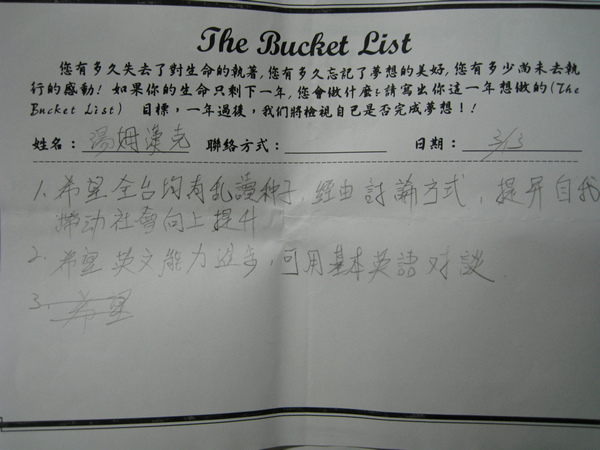 The Bucket List
您有多久失去了對生命的執著,您有多久忘記了夢想的美好,您有多少尚未去執
行的感動! 如果你的生命只剩下一年,您會做什麼?請寫出你這一年想做的(The
Bucket List) 目標,一年過後,我們將檢視自己是否完成夢想!!
姓名: 湯姆漢克 聯絡方式: 日期: 3/13
1. 希望全台均有亂讀种子, 經由討論方式, 提昇自我
帶动社會向上提升
2. 希望英文能力進步, 可用基本英語对談
3. 希望